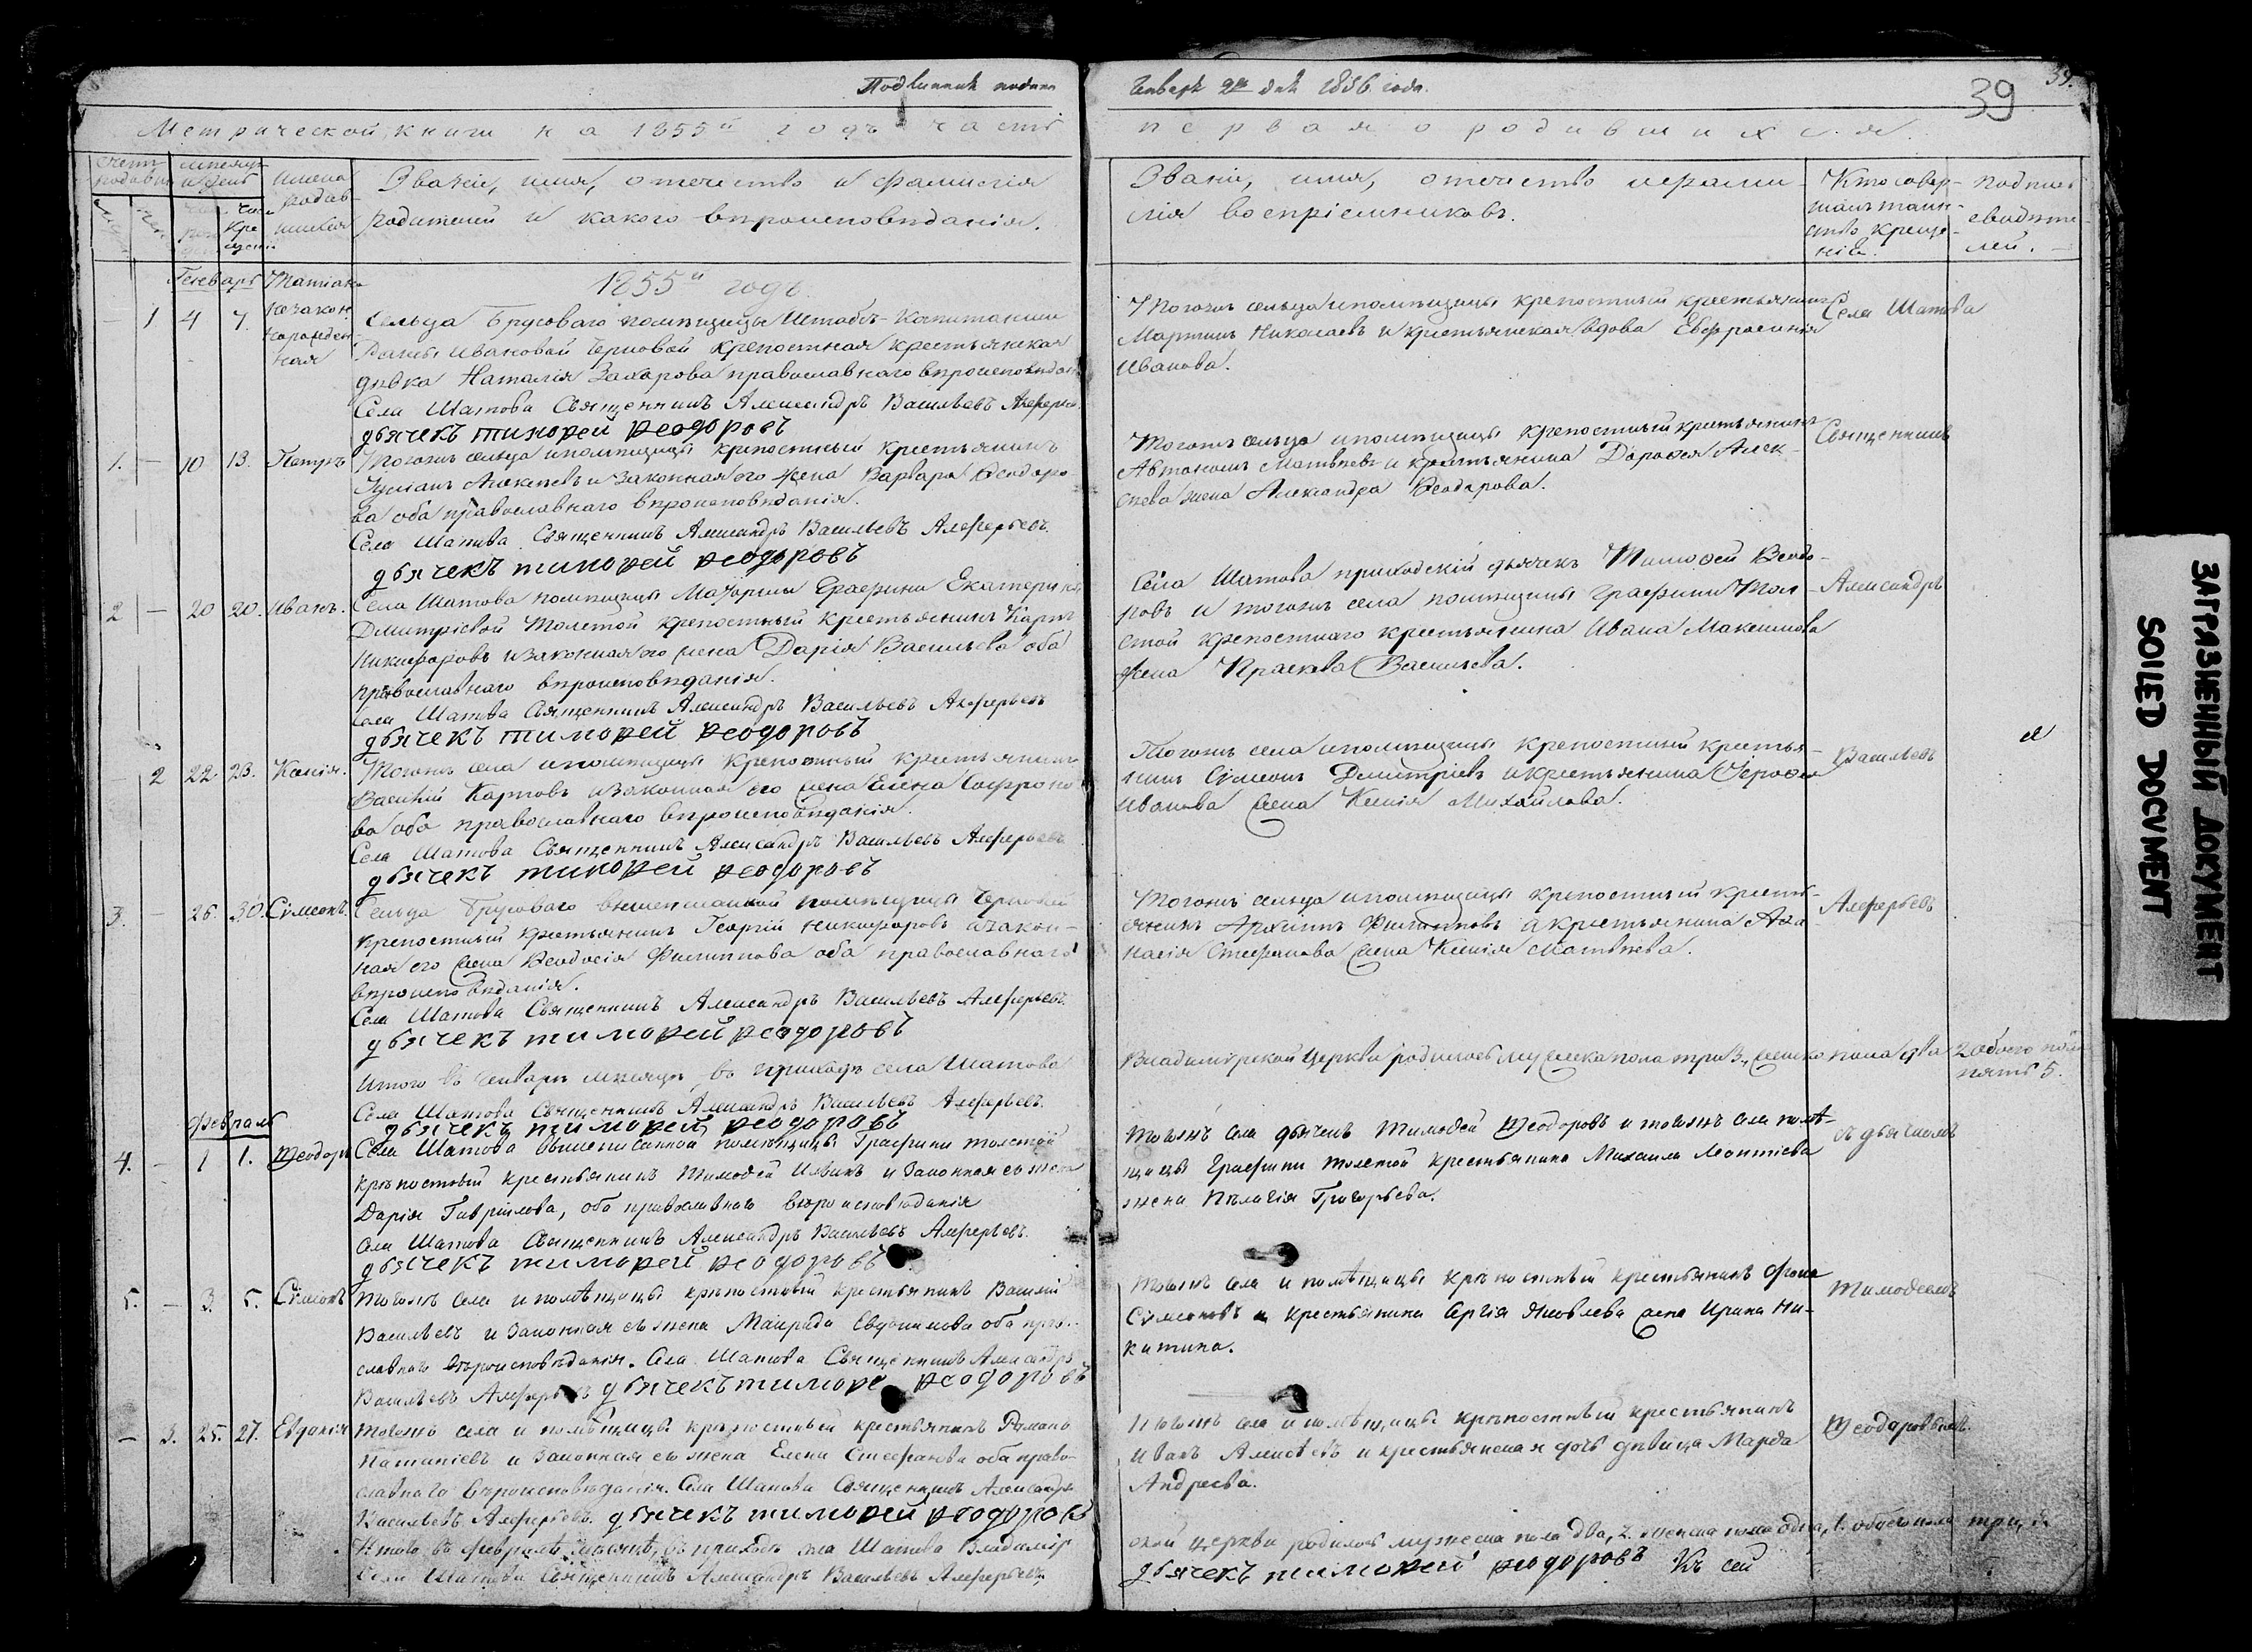 Подлинник подана Генваря 2го дня 1856. года. 39 39.
Метрической книги на 1855й годъ часть первая о родившихся.
Счетъ родивш
Мѣсяцъ и день
Имена родив-шихся
Званіе, имя, отечество и фамилія
родителей и какого вѣроисповѣданія.
Званіе, имя, отечество и фами-
лія воспріемниковъ.
Кто совер-
шалъ таин-
ство креще-
нія.
Подпись
свидѣте-
лей.
Генварь
1855й годъ.
1 4 7. Татіана незаконнорожденная
Сельца Брусоваго помѣщицы Штабсъ-Капитанши
Ивановой Черновой крепостная крестьянская
дѣвка Наталія Захарова православнаго вѣроисповѣдан
Села Шатова Священникъ Александръ Васильевъ Алферьев
дьячекъ тимоѳей ѳеодоровъ
Тогожъ сельца и помѣщицы крепостный крестьянинъ
Мартинъ Николаевъ и крестьянская вдова Евфросинія
Иванова.
Села Шатова
1. — 10 13. Петръ
Тогожъ сельца и помѣщицы крепостный крестьянинъ
и законная его жена Варвара Ѳеодоро
ва оба православнаго вѣроисповѣданія.
Села Шатова Священникъ Александръ Васильевъ Алферьевъ.
дьячекъ тимоѳей ѳеодоровъ
Тогожъ сельца и помѣщицы крепостный крестьянинъ
Автономъ Матвѣевъ и крестьянина Дороѳея Алек-
сѣева жена Александра Ѳеодорова.
Священникъ
2 — 20 20. Иванъ.
Села Шатова помѣщицы Маіорши Графини Екатерины
Дмитріевой Толстой крепостный крестьянинъ Карпъ
Никифоровъ и законная его жена Дарія Васильева оба
православнаго вѣроисповѣданія.
Села Шатова Священникъ Александръ Васильевъ Алферьевъ
дьячекъ тимоѳей ѳеодоровъ
Села Шатова приходскій дьячекъ Тимоѳей Ѳеодо-
ровъ и тогожъ села помѣщицы Графини Тол-
стой крепостнаго крестьянина Ивана Максимова
жена Прасковья Васильева.
Александръ
— 2 22 23. Ксенія.
Тогожъ села и помѣщицы крепостный крестьянинъ
Василій Карповъ и законная его жена Елена Софроно
ва оба православнаго вѣроисповѣданія.
Села Шатова Священникъ Александръ Васильевъ Алферьевъ
дьячекъ тимоѳей ѳеодоровъ
Тогожъ села и помѣщицы крепостный крестья-
нинъ Сѵмеонъ Дмитріевъ и крестьянина Іероѳея
Иванова жена Ксенія Михайлова.
Васильевъ
3. — 26. 30. Сѵмеонъ.
Сельца Брусоваго вышеписанной помѣщицы Черновой
крепостный крестьянинъ Георгій Никифоровъ и закон-
ная его жена Ѳеодосія Филиппова оба православнаго
вѣроисповѣданія.
Села Шатова Священникъ Александръ Васильевъ Алферьевъ.
дьячекъ тимоѳей ѳеодоровъ
Тогожъ сельца и помѣщицы крепостный кресть-
янинъ Архиппъ Филипповъ и крестьянина Аѳа
насія Стефанова жена Ксенія Матвѣева.
Алферьевъ
Итого въ Генварѣ мѣсяцѣ въ приходѣ села Шатова Владимірской Церкви родилось мужеска пола три 3, женска пола два 2 обоего пола
пять 5.
Села Шатова Священникъ Александръ Васильевъ Алферьевъ.
дьячекъ тимоѳей ѳеодоровъ
Февраль
4. — 1 1. Ѳеодоръ
Села Шатова вышеписанной помѣщицы Графини толстой
крѣпостный крестьянинъ Тимоѳей и Законная его жена
Дарія Гавріилова, оба православнаго вѣроисповѣданія
Села Шатова Священникъ Александръ Васильевъ Алферьевъ.
дьячекъ тимоѳей ѳеодоровъ
Тогожъ села дьячекъ Тимоѳей Ѳеодоровъ и тогожъ села помѣ-
щицы Графини толстой крестьянина Михаила Леонтіева
жена Пелагія Григорьева.
съ дьячкомъ
5. — 3. 5. Сѵмеонъ
Тогожъ села и помѣщицы крѣпостный крестьянинъ Василій
Васильевъ и Законная его жена Евдокимова оба право-
славнаго вѣроисповѣданія. Села Шатова Священникъ Александръ
Васильевъ Алферьевъ дьячекъ тимоѳе ѳеодоровъ
Тогожъ села и помѣщицы крѣпостный крестьянинъ Фома
Сѵмеоновъ и крестьянина Сергія Яковлева жена Ирина Ни-
китина.
Тимоѳеемъ
— 3. 25. 27. Евдокія
Тогожъ села и помѣщицы крѣпостный крестьянинъ Романъ
и Законная его жена Елена Стефанова оба право-
славнаго вѣроисповѣданія. Села Шатова Священникъ Александръ
Васильевъ Алферьевъ. дьячекъ тимоѳей ѳеодоровъ
Тогожъ села и помѣщицы крѣпостный крестьянинъ
Иванъ Алексѣевъ и крестьянская дочь дѣвица Марѳа
Андреева.
Ѳеодоровымъ.
Итого въ Февралѣ мѣсяцѣ, въ приходѣ села Шатова Владимір
ской церкви родилось мужеска пола два, 2. женска пола одна, 1. обоего пола три, 3.
Села Шатова Священникъ Александръ Васильевъ Алферьевъ
дьячекъ тимоѳей ѳеодоровъ Къ сей
ЗАГРЯЗНЕННЫЙ ДОКУМЕНТ
SOILED DOCUMENT